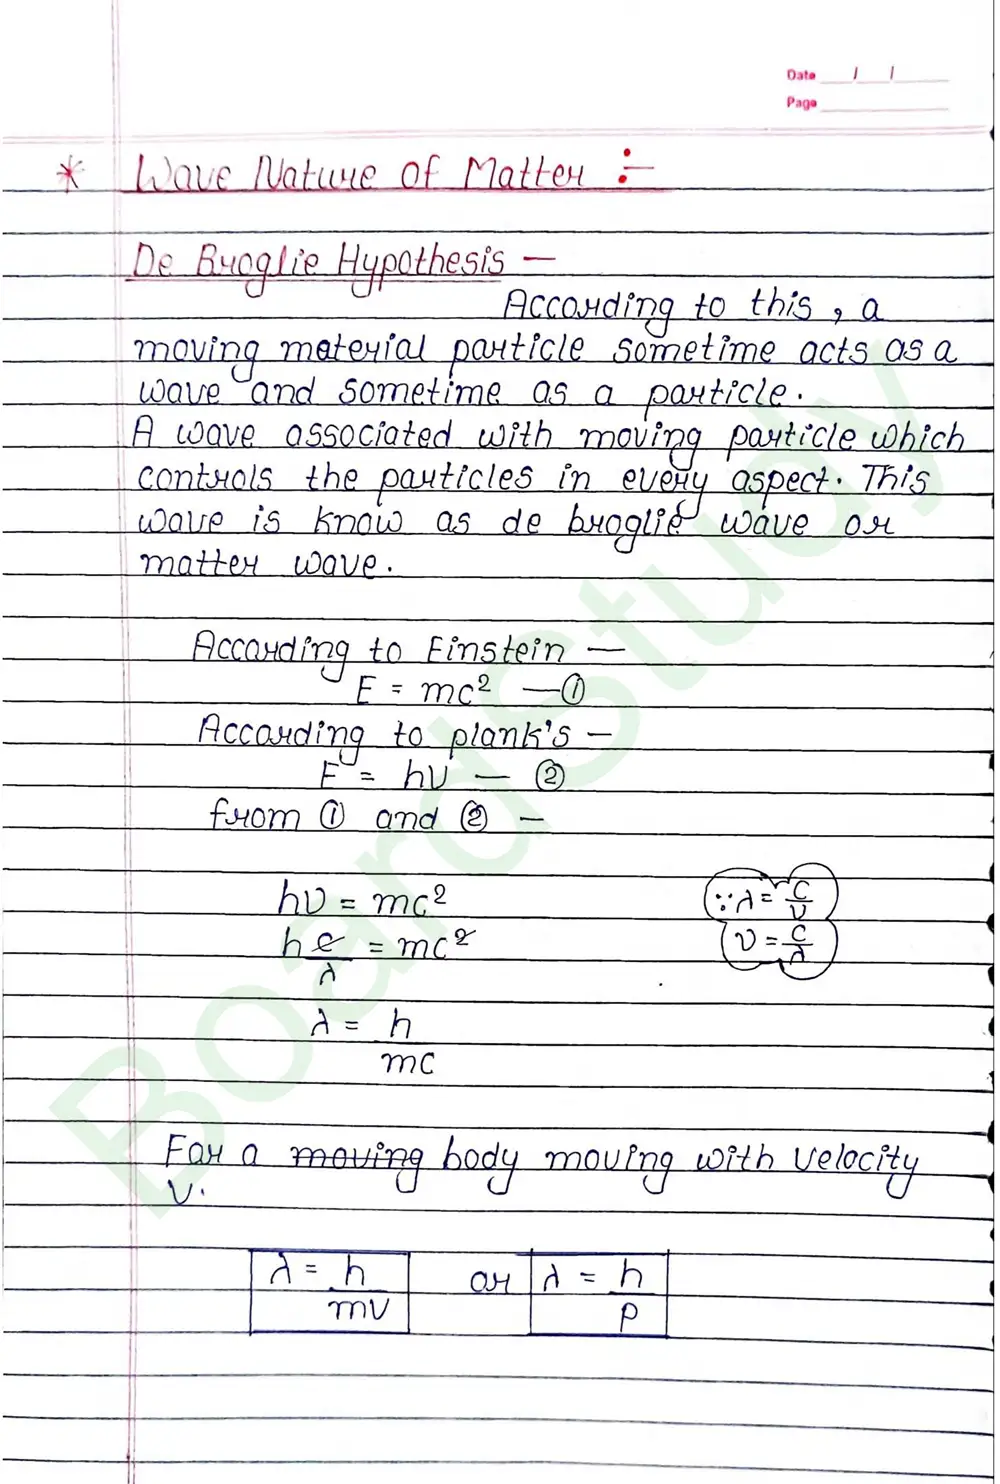 Date / /
Page
* Wave Nature of Matter :-
De Broglie Hypothesis —
According to this, a
moving material particle sometime acts as a
wave and sometime as a particle.
A wave associated with moving particle which
controls the particles in every aspect. This
wave is know as de broglie wave or
matter wave.
According to Einstein —
E = mc² —①
According to plank's —
E = hν — ②
from ① and ② —
hν = mc²
∵ λ = c/ν
h c/λ = mc²
ν = c/λ
λ = h/mc
For a moving body moving with velocity
v.
λ = h/mv or λ = h/p
BoardStudy